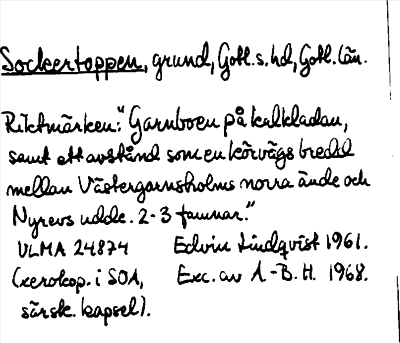 Sockertoppen, grund, Gotl. s. hd, Gotl. län.
Riktmärken: "Garnboen på kalkladan,
samt ett avstånd som en körvägs bredd
mellan Västergarnsholms norra ände och
Nyrevs udde. 2-3 famnar."
ULMA 24874 Edvin Lindqvist 1961.
(xerokop. i SOA, Exc. av A-B. H. 1968.
särsk. kapsel).